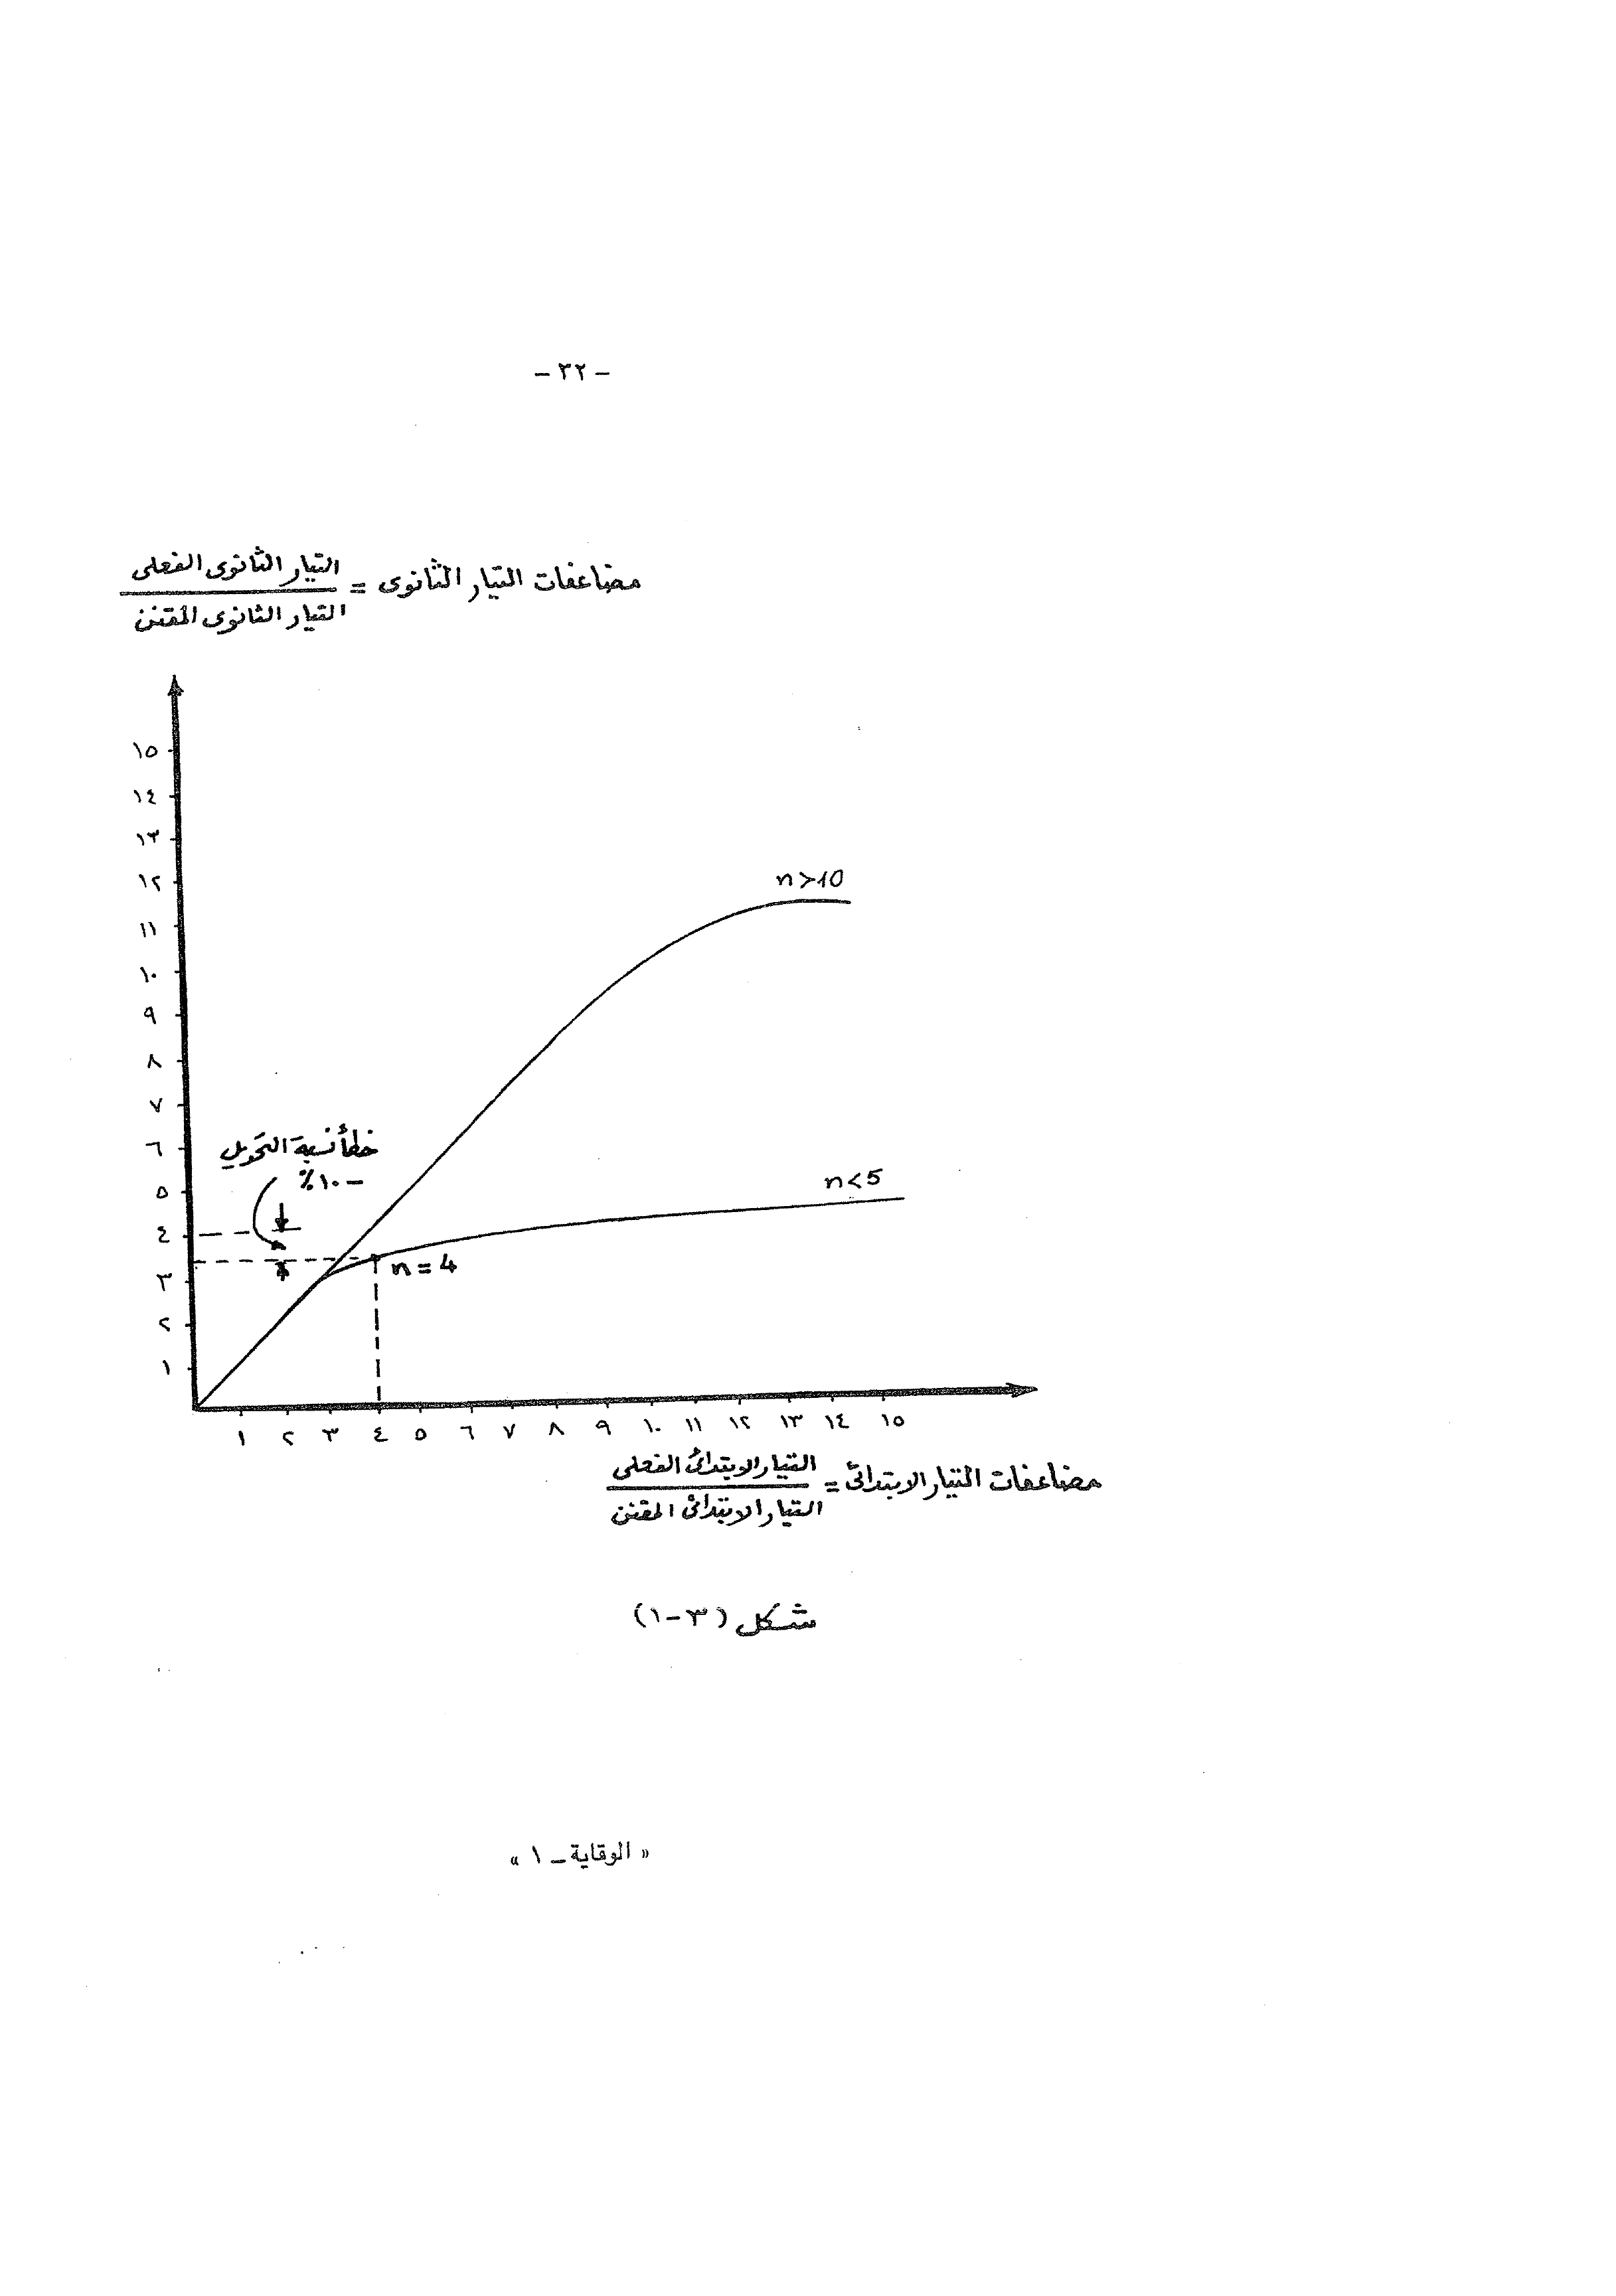 - ٣٢ -
مضاعفات التيار الثانوى = التيار الثانوى الفعلى
التيار الثانوى المقنن
١٥
١٤
١٣
١٢
١١
١٠
٩
٨
٧
٦
٥
٤
٣
٢
١
n>10
n<5
خطأ نسبة التحويل
- ١٠٪
n=4
١ ٢ ٣ ٤ ٥ ٦ ٧ ٨ ٩ ١٠ ١١ ١٢ ١٣ ١٤ ١٥
مضاعفات التيار الابتدائى = التيار الابتدائى الفعلى
التيار الابتدائى المقنن
شكل (٣-١)
« الوقاية - ١ »